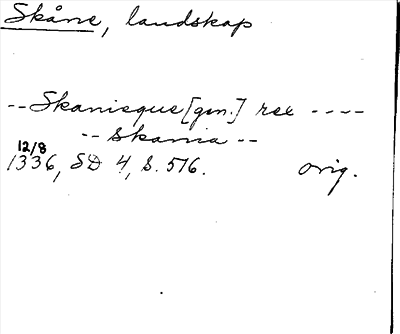 Skåne, landskap
-- Skanieque [gen.] rex ----
-- Skania --
12/8
1336, SD 4, S. 576. orig.